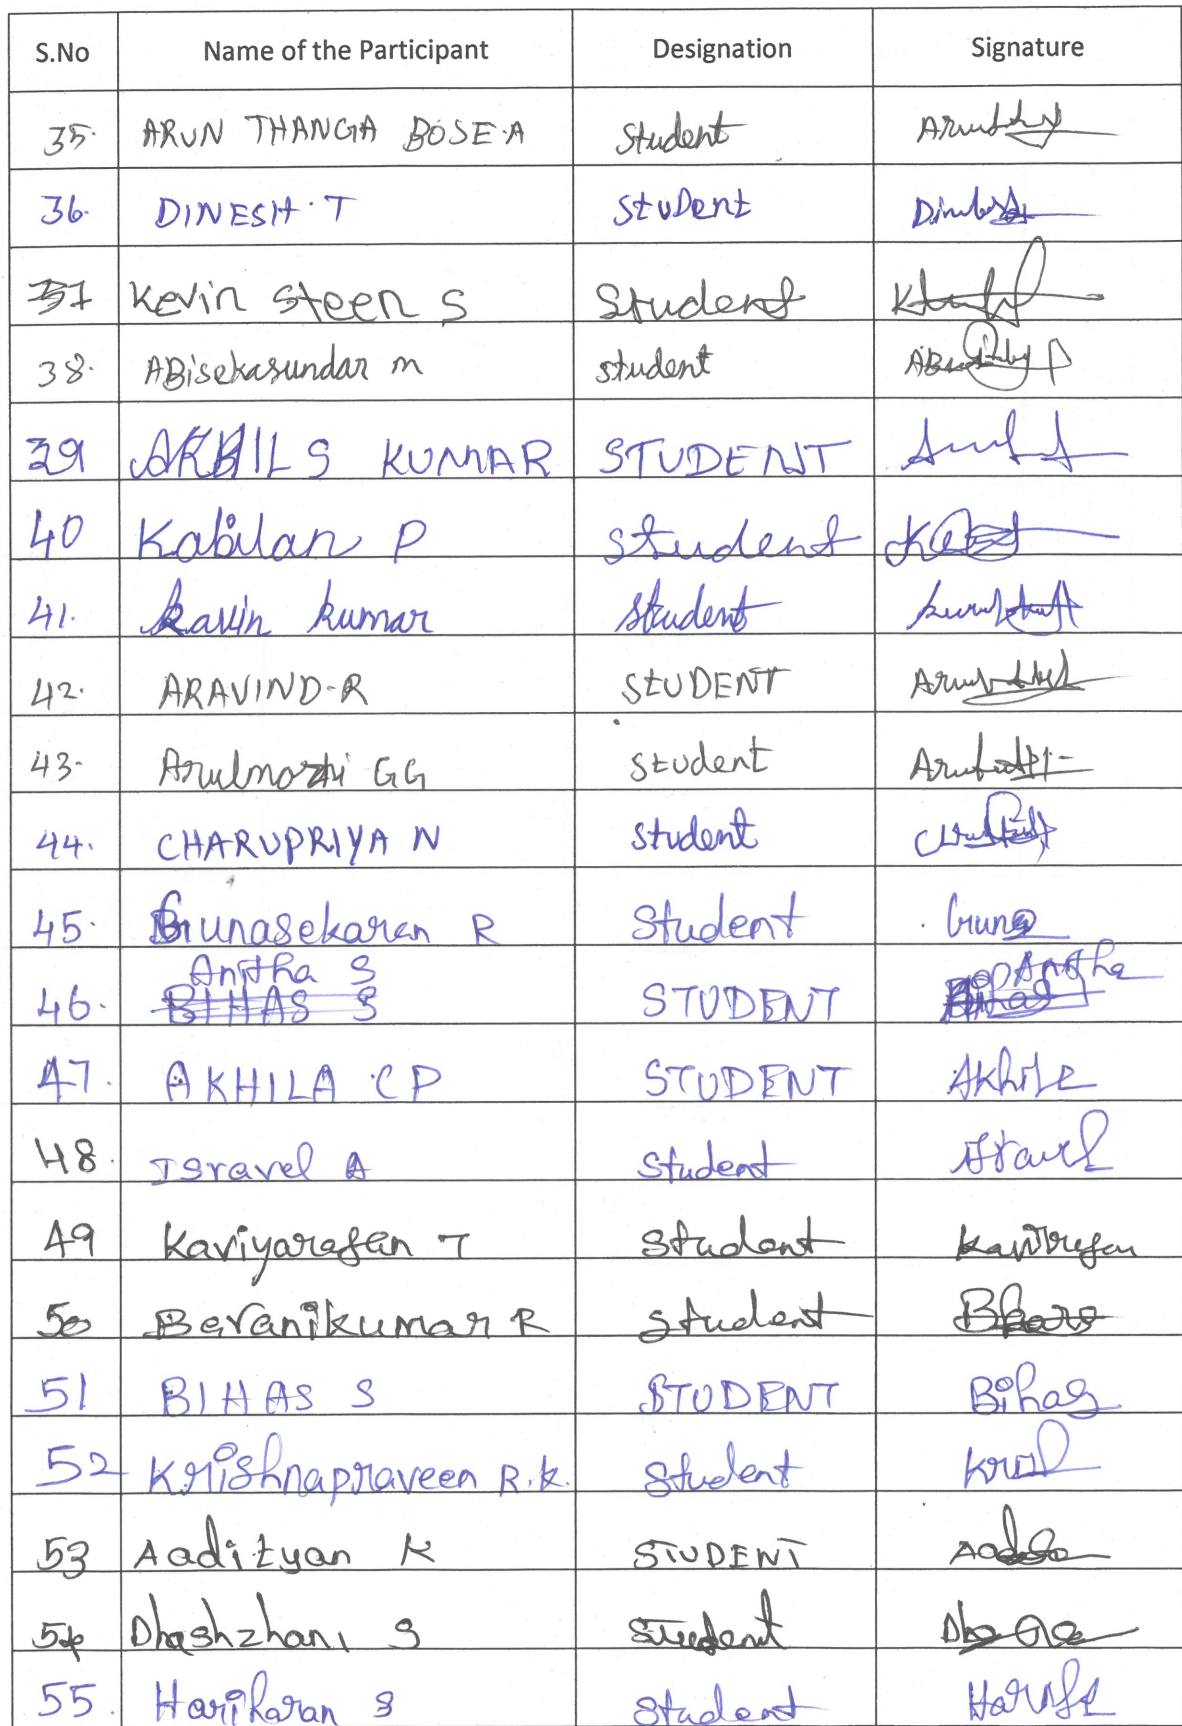 S.No Name of the Participant Designation Signature
35. ARUN THANGA BOSE.A Student
36. DINESH.T StuDent
37 Kevin Steen S Student
38. ABisekasundar m student
39 AKHIL S KUMAR STUDENT
40 Kabilan P Student
41. kavin kumar Student
42. ARAVIND.R StUDENT
43. Arulmozhi GG Student
44. CHARUPRIYA N Student
45. Gunasekaran R Student Guna
Anitha S Anitha
46. BIHAS S STUDENT Bihas
47. AKHILA C P STUDENT Akhila
48. Isravel A Student Isravel
49 Kaviyarasan T Student
50 Beranikumar R Student
51 BIHAS S STUDENT Bihas
52 Krishnapraveen R.K. Student
53 Aadityan K STUDENT
54 Dhashzhani S Student
55. Hariharan S Student